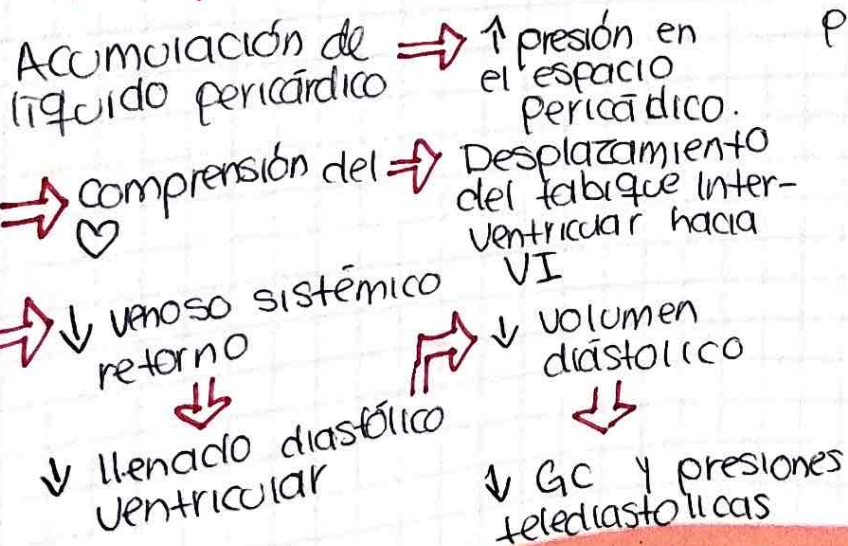 Acumulación de
líquido pericárdico
⇒ ↑ presión en
el espacio
pericádico.
P
⇒ comprensión del
♡
⇒ Desplazamiento
del tabique inter-
ventricular hacia
VI
⇒ ↓ venoso sistémico
retorno
⇓
↓ llenado diastólico
ventricular
⇒ ↓ volumen
diástolico
⇓
↓ GC y presiones
telediastolicas